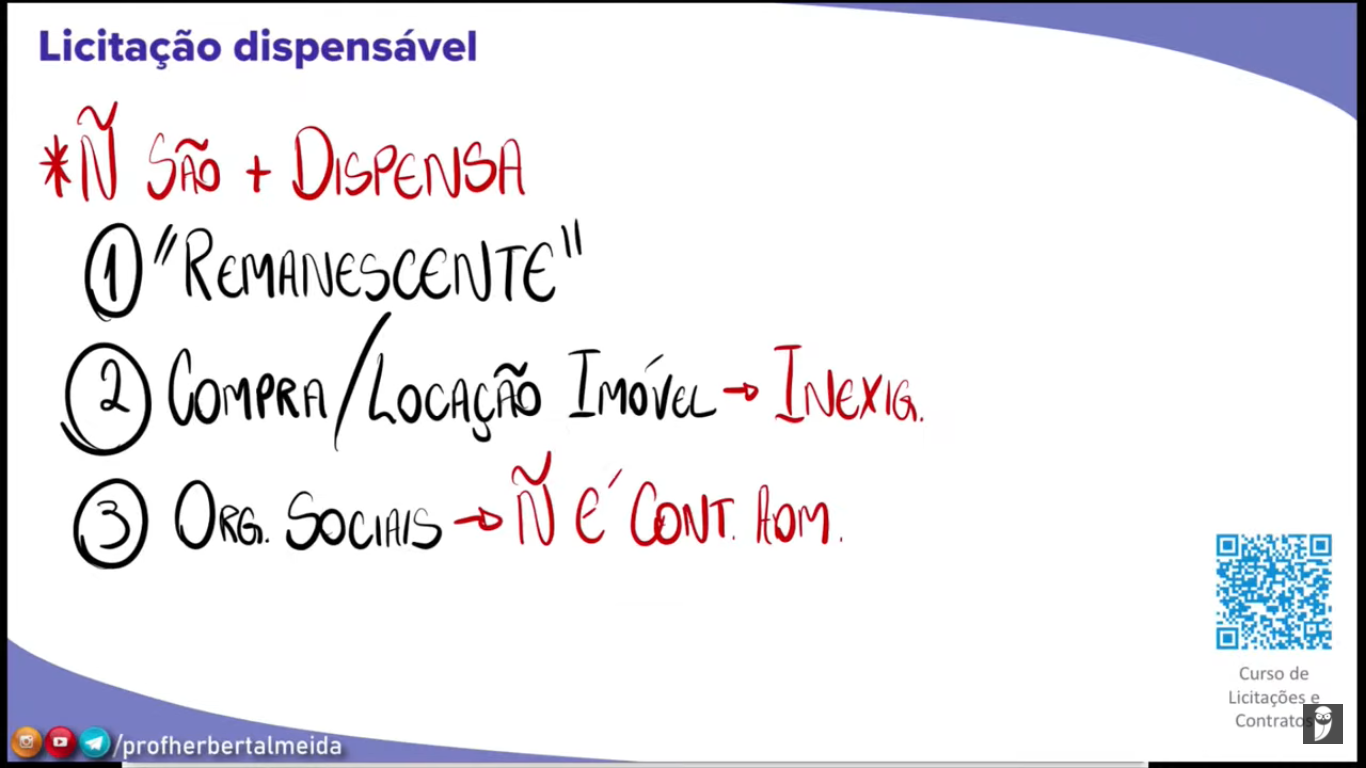 Licitação dispensável
*Ñ SÃO + DISPENSA
1 "REMANESCENTE"
2 COMPRA/LOCAÇÃO IMÓVEL → INEXIG.
3 ORG. SOCIAIS → Ñ É CONT. ADM.
Curso de
Licitações e
Contratos
/profherbertalmeida